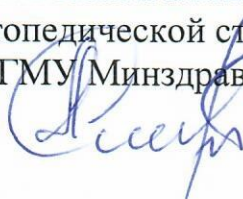 топедической ст
ГМУ Минздрав